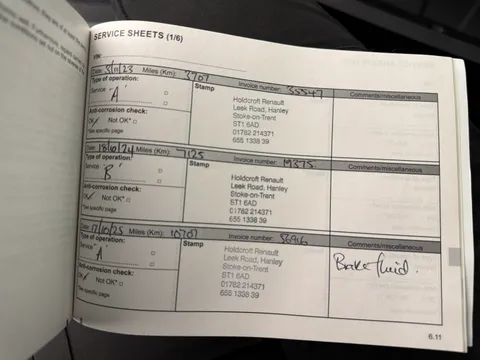 SERVICE SHEETS (1/6)
VIN:
Date: 3/11/23 Miles (Km): 3707 Invoice number: Comments/miscellaneous
Type of operation: Stamp
Service "A"
Holdcroft Renault
Leek Road, Hanley
Stoke-on-Trent
ST1 6AD
01782 214371
655 1338 39
Anti-corrosion check:
OK Not OK*
*See specific page
Date: 18/10/24 Miles (Km): 7125 Invoice number: 19375 Comments/miscellaneous
Type of operation: Stamp
Service "B"
Holdcroft Renault
Leek Road, Hanley
Stoke-on-Trent
ST1 6AD
01782 214371
655 1338 39
Anti-corrosion check:
OK Not OK*
*See specific page
Date: 17/10/25 Miles (Km): 10707 Invoice number: Comments/miscellaneous
Type of operation: Stamp
Service "A"
Holdcroft Renault
Leek Road, Hanley
Stoke-on-Trent
ST1 6AD
01782 214371
655 1338 39
Brake fluid.
Anti-corrosion check:
OK Not OK*
*See specific page
6.11